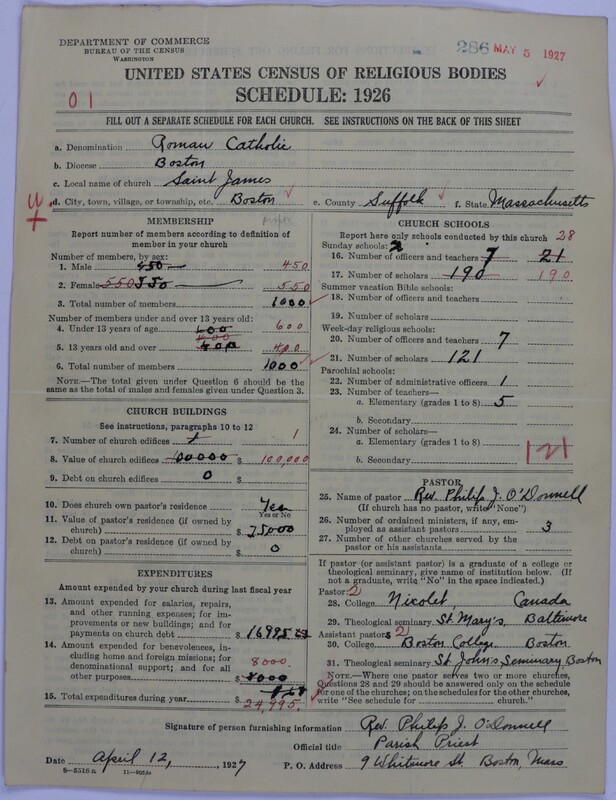 DEPARTMENT OF COMMERCE
BUREAU OF THE CENSUS
WASHINGTON
286 MAY 5 1927
UNITED STATES CENSUS OF RELIGIOUS BODIES
SCHEDULE: 1926
01
FILL OUT A SEPARATE SCHEDULE FOR EACH CHURCH. SEE INSTRUCTIONS ON THE BACK OF THIS SHEET
a. Denomination Roman Catholic
b. Diocese Boston
c. Local name of church Saint James
d. City, town, village, or township, etc. Boston e. County Suffolk f. State Massachusetts
MEMBERSHIP
Report number of members according to definition of
member in your church
Number of members, by sex:
1. Male 450 450
2. Female 550 550 550
3. Total number of members 1000
Number of members under and over 13 years old:
4. Under 13 years of age 600 600
5. 13 years old and over 400 400 400
6. Total number of members 1000
NOTE.—The total given under Question 6 should be the
same as the total of males and females given under Question 3.
CHURCH BUILDINGS
See instructions, paragraphs 10 to 12
7. Number of church edifices 1 1
8. Value of church edifices 100000 $ 100,000
9. Debt on church edifices 0 $
10. Does church own pastor's residence Yes
Yes or No
11. Value of pastor's residence (if owned by
church) $ 75000
12. Debt on pastor's residence (if owned by
church) $ 0
EXPENDITURES
Amount expended by your church during last fiscal year
13. Amount expended for salaries, repairs,
and other running expenses; for im-
provements or new buildings; and for
payments on church debt $ 16995
14. Amount expended for benevolences, in-
cluding home and foreign missions; for
denominational support; and for all
other purposes $ 8000 8000.
15. Total expenditures during year $ 24,995.
CHURCH SCHOOLS
Report here only schools conducted by this church 28
Sunday schools: 2
16. Number of officers and teachers 7 21
17. Number of scholars 190 190
Summer vacation Bible schools:
18. Number of officers and teachers
19. Number of scholars
Week-day religious schools:
20. Number of officers and teachers 7
21. Number of scholars 121
Parochial schools:
22. Number of administrative officers 1
23. Number of teachers—
a. Elementary (grades 1 to 8) 5
b. Secondary
24. Number of scholars—
a. Elementary (grades 1 to 8)
b. Secondary 121
PASTOR
25. Name of pastor Rev. Philip J. O'Donnell
(If church has no pastor, write "None")
26. Number of ordained ministers, if any, em-
ployed as assistant pastors 3
27. Number of other churches served by the
pastor or his assistants
If pastor (or assistant pastor) is a graduate of a college or
theological seminary, give name of institution below. (If
not a graduate, write "No" in the space indicated.)
Pastor: 2
28. College Nicolet, Canada
29. Theological seminary St. Mary's, Baltimore
Assistant pastors 2
30. College Boston College, Boston
31. Theological seminary St. John's Seminary Boston
NOTE.—Where one pastor serves two or more churches,
Questions 28 and 29 should be answered only on the schedule
for one of the churches; on the schedules for the other churches,
write "See schedule for church."
Signature of person furnishing information Rev. Philip J. O'Donnell
Official title Parish Priest
Date April 12, 1927 P. O. Address 9 Whitmore St. Boston, Mass